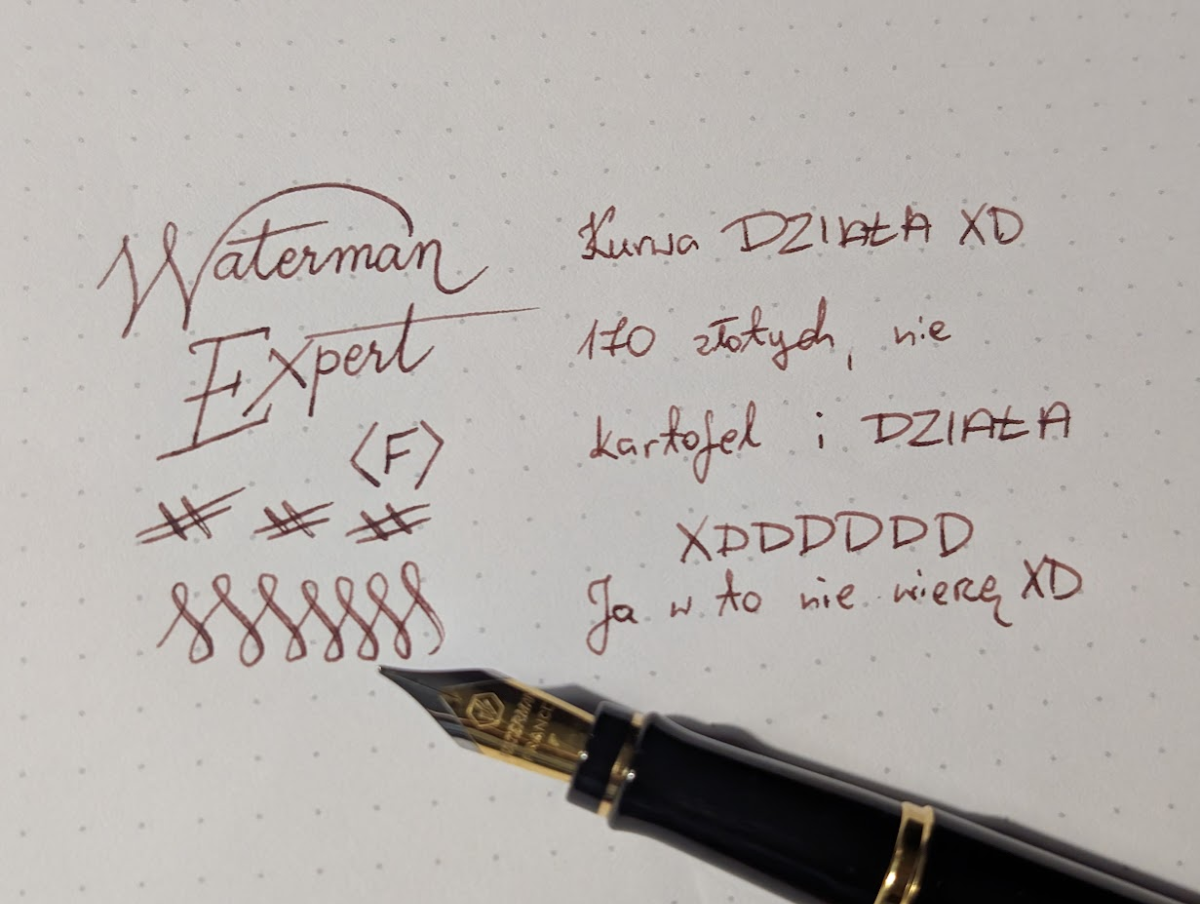 Waterman
Expert
<F>
Kurwa DZIAŁA XD
170 złotych, nie
kartofel i DZIAŁA
XDDDDDD
Ja w to nie wierzę XD
F